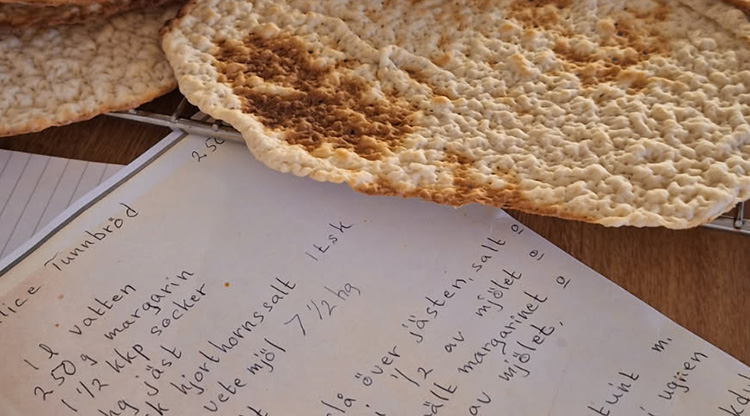 2.50
lice Tunnbröd
1 l vatten
250 g margarin
1 1/2 kkp socker
hg jäst
sk hjorthornssalt 1 tsk
vete mjöl 7 1/2 hg
lå över jästen, salt o
1/2 av mjölet o
ält margarinet o
av mjölet.
m.
ugrien